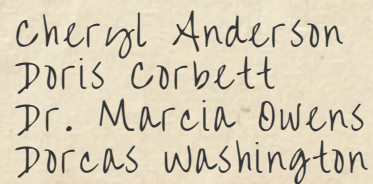 Cheryl Anderson
Doris Corbett
Dr. Marcia Owens
Dorcas Washington